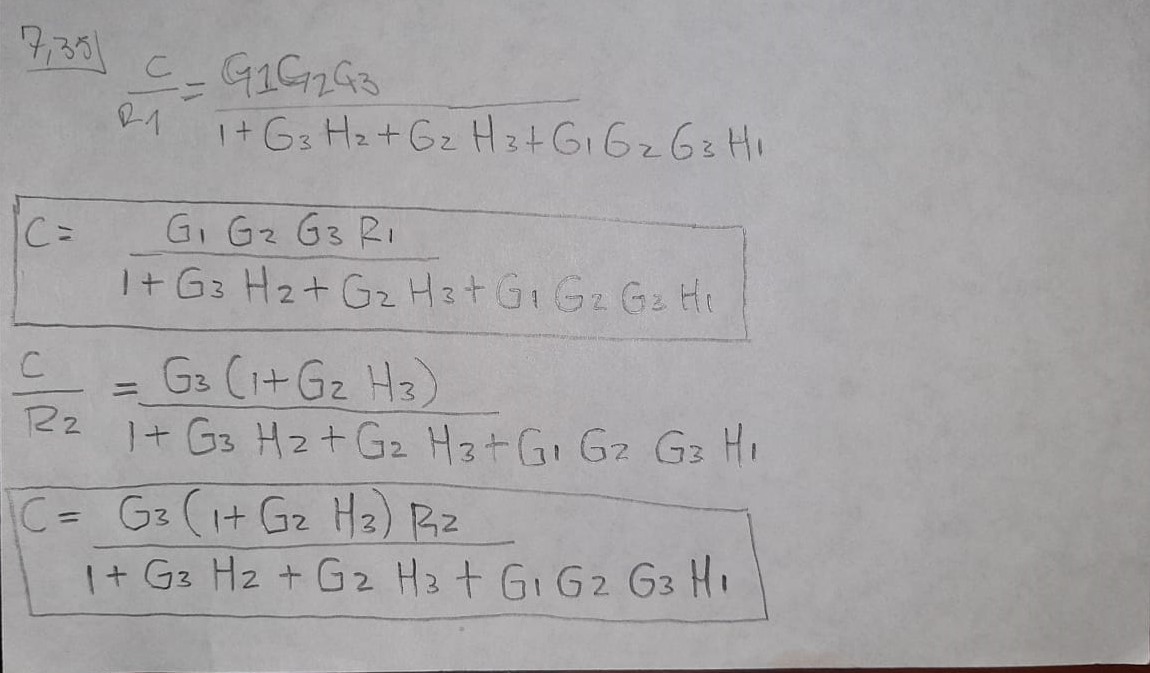 7,35)
C/R1 = G1G2G3
1+G3 H2+G2 H3+G1G2 G3 H1
C= G1 G2 G3 R1
1+G3 H2+G2 H3+G1 G2 G3 H1
C/R2 = G3 (1+G2 H3)
1+ G3 H2+G2 H3+G1 G2 G3 H1
C= G3 (1+G2 H3) R2
1+ G3 H2 + G2 H3 + G1 G2 G3 H1